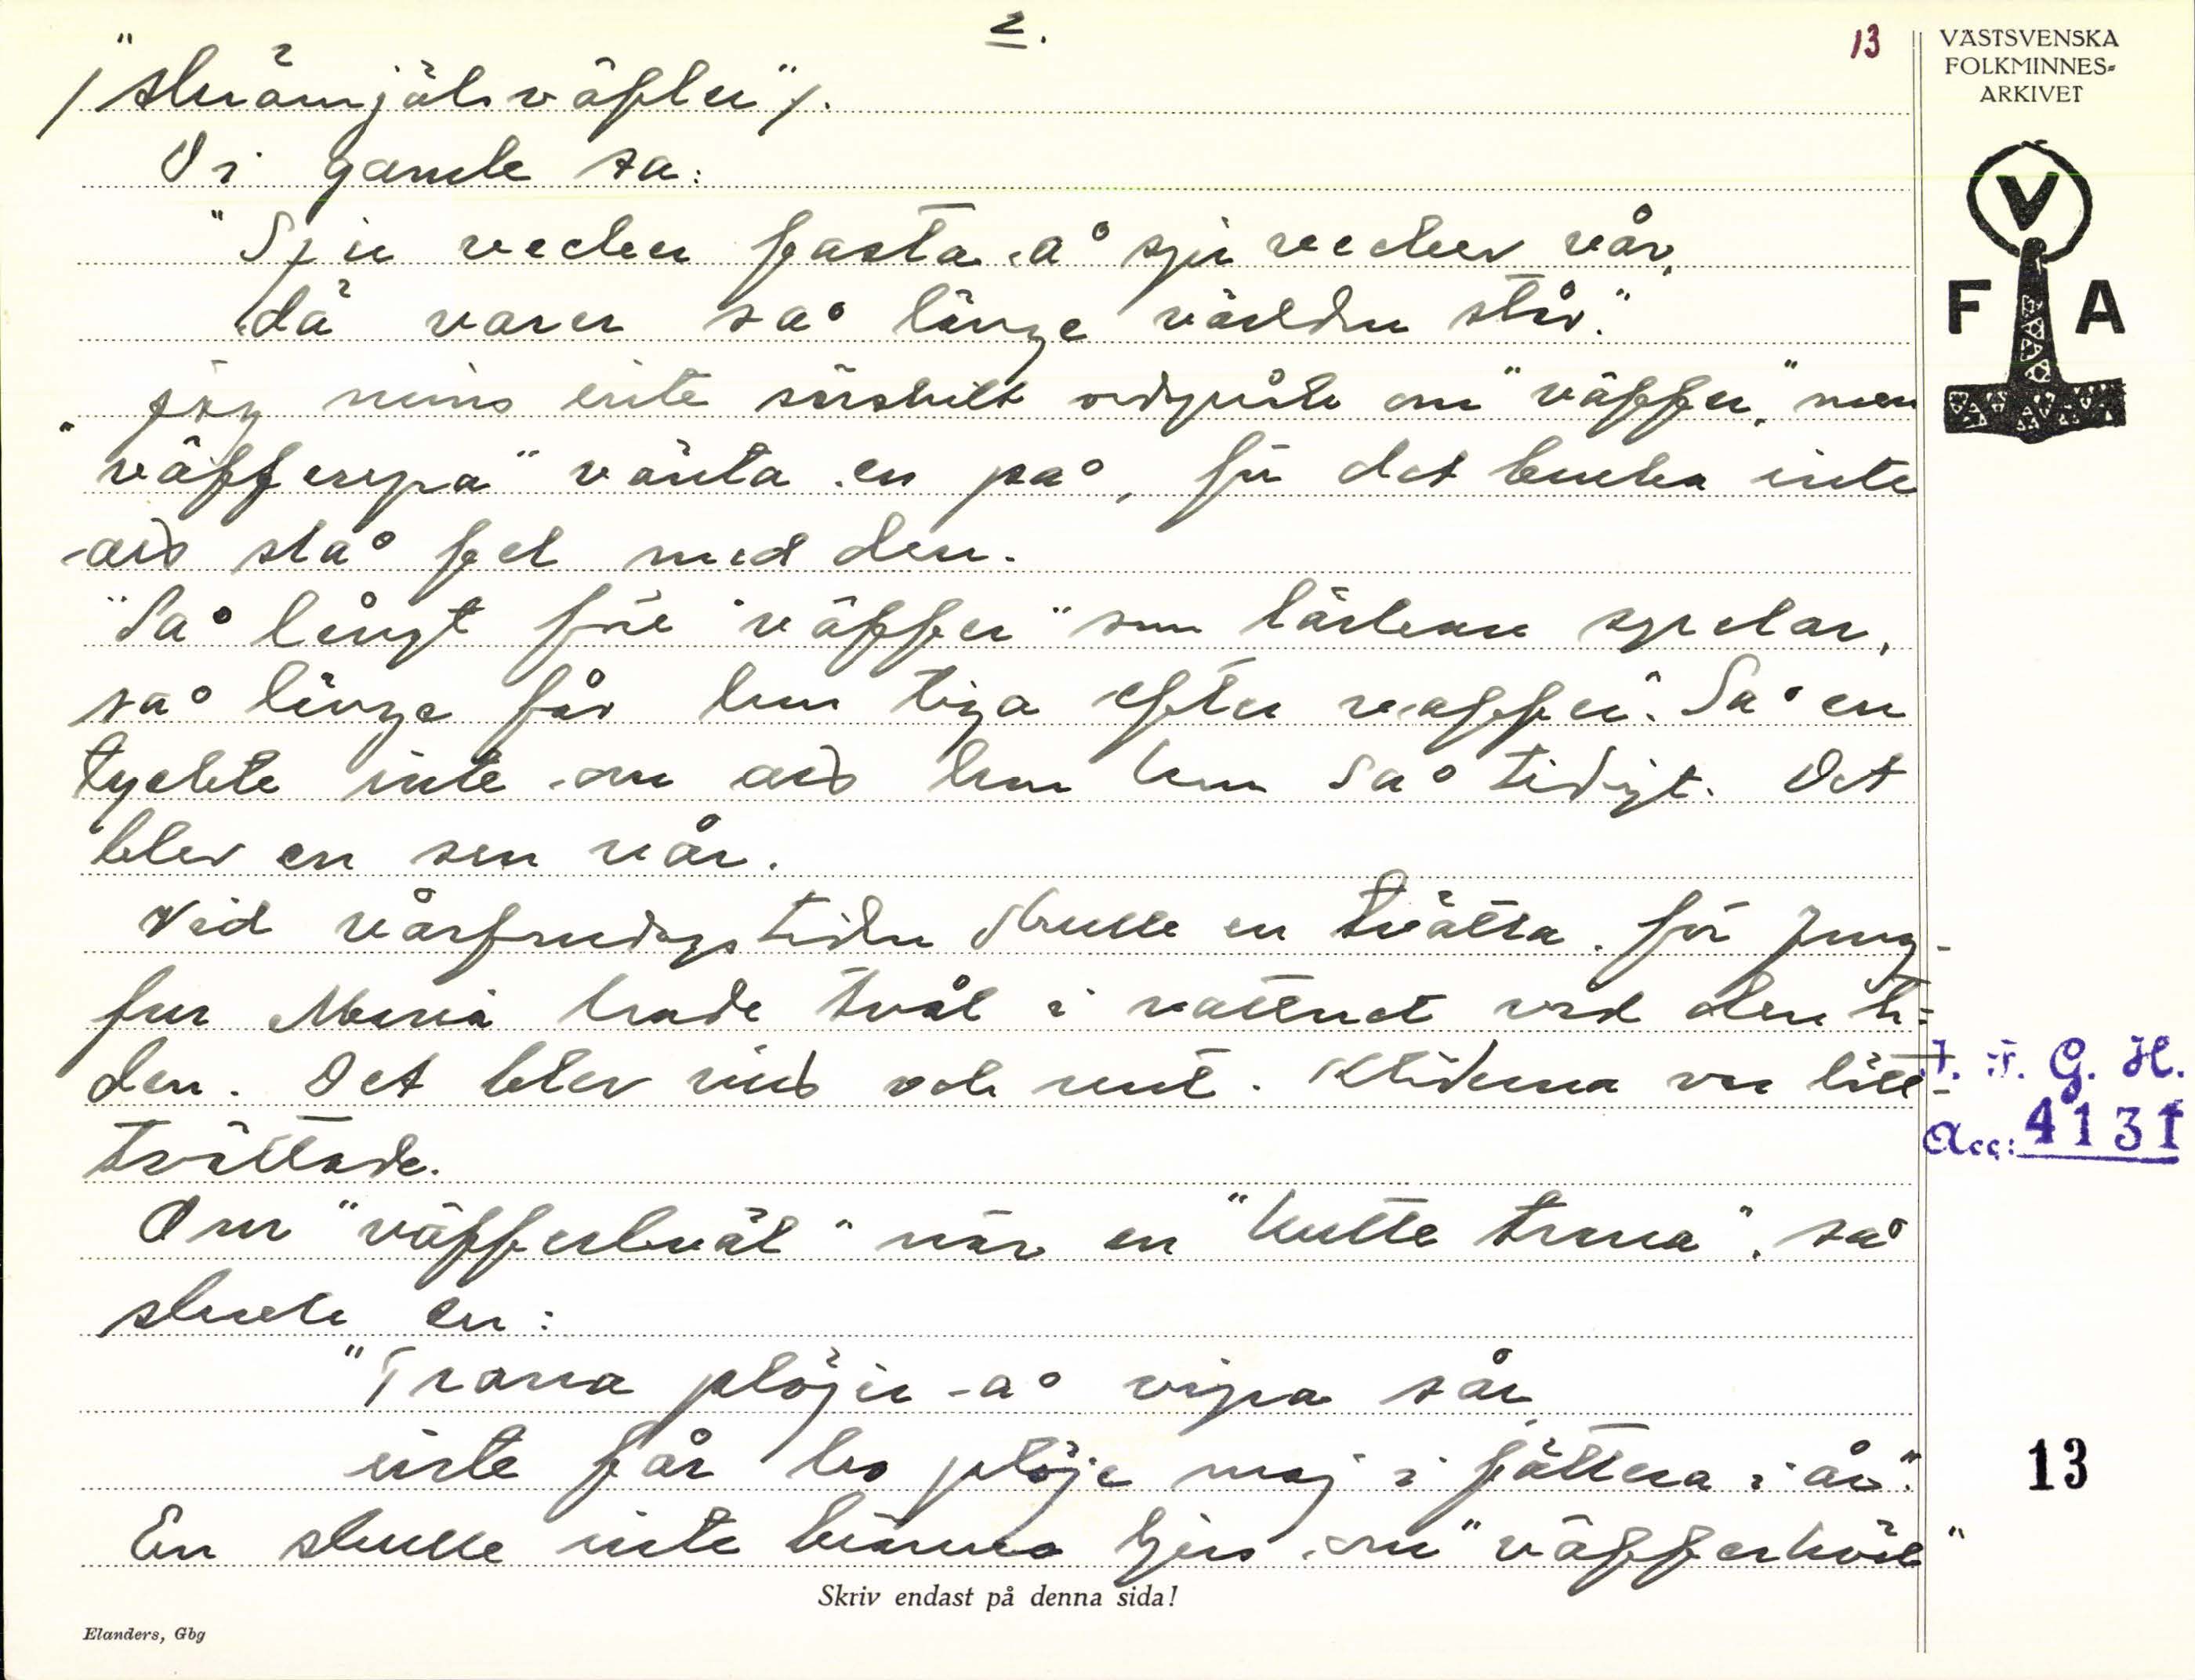 2.
13
VÄSTSVENSKA
FOLKMINNES-
ARKIVET
V
F A
/"skrämjölsväfler"/.
Di gamle sa:
"Sju vecker fasta å sju vecker vår,
dä varer så länge världen står."
Jag mins inte särskilt ordspråk om "väffer," men
"väfferepa" vänta en på, för det bruka inte
att slå fel med den.
"Så långt före "väffer" som lärkan spelar,
så länge får hon tiga efter väffer". Så en
tyckte inte om att hon kom så tidigt. Det
blev en sen vår.
Vid vårfrudagstiden skulle en tvätta, för Jung-
fru Maria hade tvål i vattnet vid den ti-
den. Det blev vitt och rent. Kläderna var lätt-
tvättade.
Om "väfferkväl" när en "hutte trana", så
skrek en:
"Trana plöjer å vipa sår
inte får ho plöje maj i fättera i år."
En skulle inte bränna ljus om "väfferkväl"
J. F. G. H.
Acc: 4131
13
Skriv endast på denna sida!
Elanders, Gbg